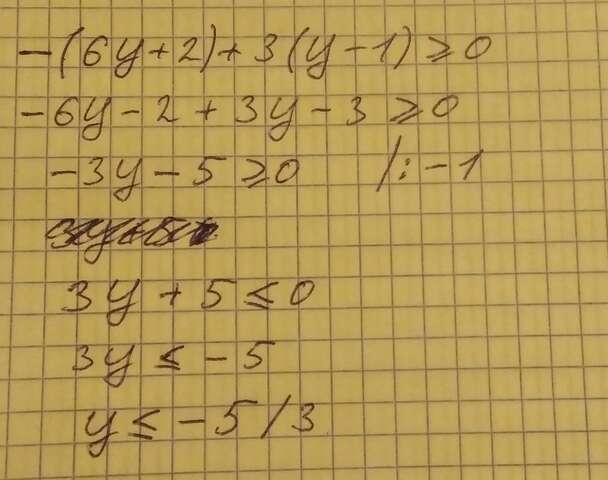 -(6y+2)+3(y-1)≥0
-6y-2+3y-3≥0
-3y-5≥0 /:-1
3y+5≤0
3y≤-5
y≤-5/3